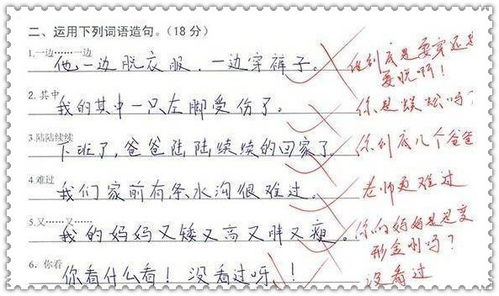 二、运用下列词语造句。(18 分)
1.一边……一边
他一边脱衣服，一边穿裤子。
他到底是要穿还是要脱啊！
2. 其中
我的其中一只左脚受伤了。
你是蜈蚣吗？
3.陆陆续续
下班了，爸爸陆陆续续的回家了。
你到底几个爸爸
4 难过
我们家前有条水沟很难过。
老师更难过
5.又……又……
我的妈妈又矮又高又胖又瘦。
你的妈妈是变形金刚吗？
6. 你看
你看什么看！没看过呀！！
没看过